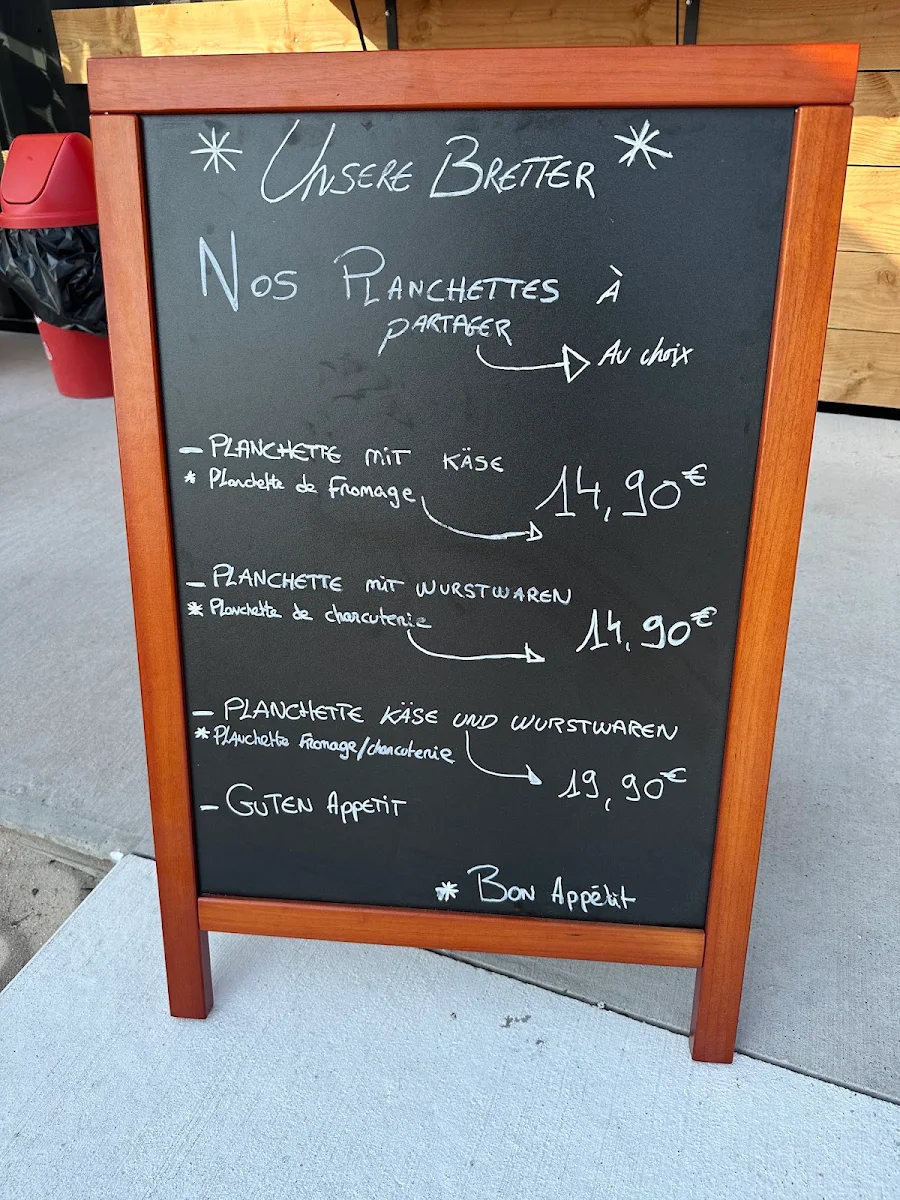 * UNSERE BRETTER *
NOS PLANCHETTES À
PARTAGER
Au choix
- PLANCHETTE MIT KÄSE
* Planchette de Fromage
14,90€
- PLANCHETTE MIT WURSTWAREN
* Planchette de charcuterie
14,90€
- PLANCHETTE KÄSE UND WURSTWAREN
* Planchette Fromage/charcuterie
19,90€
- GUTEN APPETIT
* BON Appétit